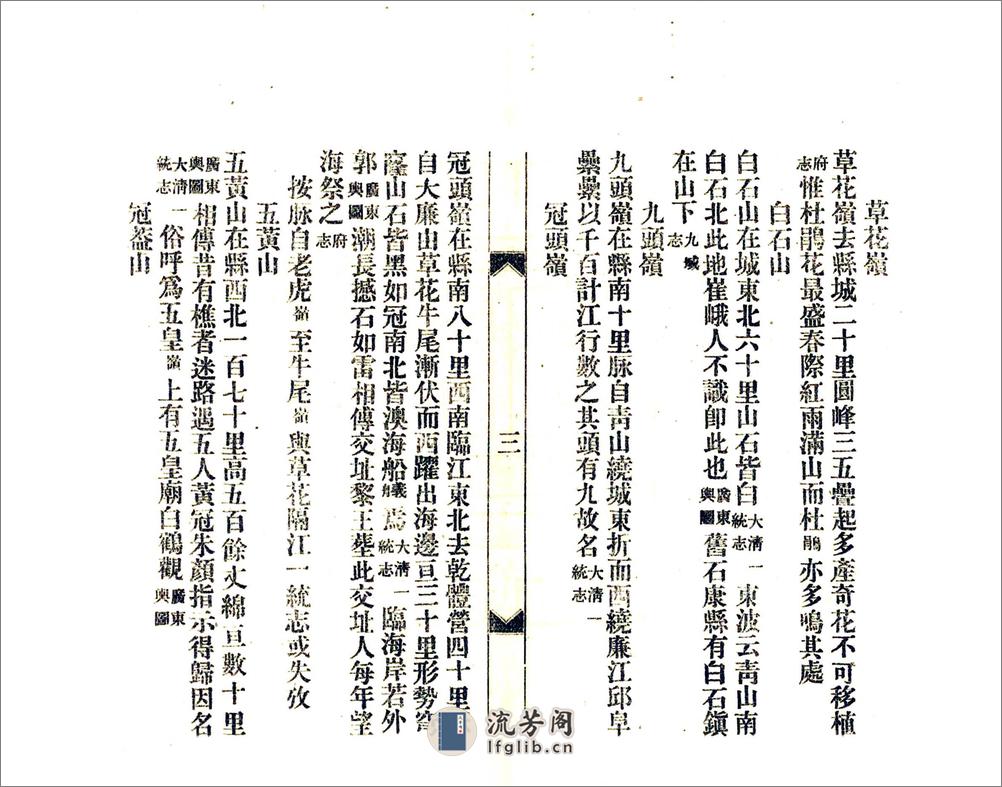 草花嶺
草花嶺去縣城二十里圓峰三五疊起多產奇花不可移植
府志惟杜鵑花最盛春際紅雨滿山而杜鵑亦多鳴其處
白石山
白石山在城東北六十里山石皆白大清一統志東波云青山南
白石北此地崔峨人不識卽此也廣東輿圖舊石康縣有白石鎮
在山下九域志
九頭嶺
九頭嶺在縣南十里脉自青山繞城東折而西繞廉江邱阜
纍纍以千百計江行數之其頭有九故名大清一統志
冠頭嶺
三
冠頭嶺在縣南八十里西南臨江東北去乾體營四十里
自大廉山草花牛尾漸伏而西躍出海邊亘三十里形勢穹
窿山石皆黑如冠南北皆澳海船艤焉大清一統志臨海岸若外
郭廣東輿圖潮長撼石如雷相傳交址黎王塟此交址人每年望
海祭之府志
按脉自老虎嶺至牛尾嶺與草花隔江一統志或失攷
五黃山
五黃山在縣西北一百七十里高五百餘丈綿亘數十里
廣東輿圖相傳昔有樵者迷路遇五人黃冠朱顏指示得歸因名
大清一統志俗呼爲五皇嶺上有五皇廟白鶴觀廣東輿圖
冠蓋山
流芳阁
lfglib.cn